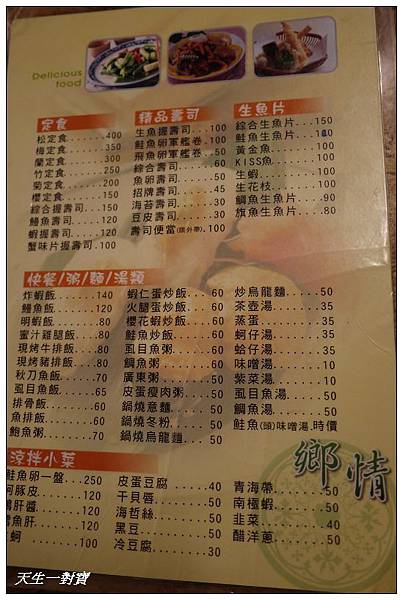 Delicious
food
定食
松定食 400
梅定食 350
蘭定食 300
竹定食 250
菊定食 200
櫻定食 150
綜合握壽司 150
鰻魚壽司 120
蝦握壽司 100
蟹味片握壽司 100
精品壽司
生魚握壽司 100
鮭魚卵軍艦卷 100
飛魚卵軍艦卷 50
綜合壽司 60
魚卵壽司 50
招牌壽司 45
海苔壽司 30
豆皮壽司 30
壽司便當(限外帶) 100
生魚片
綜合生魚片 150
鮭魚生魚片 100
黃金魚 100
KISS魚 100
生蝦 100
生花枝 100
鯛魚生魚片 90
旗魚生魚片 80
快餐/粥/麵/湯類
炸蝦飯 140
鰻魚飯 120
明蝦飯 80
蜜汁雞腿飯 80
現烤牛排飯 80
現烤豬排飯 80
秋刀魚飯 70
虱目魚飯 65
排骨飯 60
魚排飯 60
鮑魚粥 70
蝦仁蛋炒飯 60
火腿蛋炒飯 60
櫻花蝦炒飯 60
鮭魚炒飯 60
虱目魚粥 60
鯛魚粥 60
廣東粥 50
皮蛋瘦肉粥 50
鍋燒意麵 50
鍋燒冬粉 50
鍋燒烏龍麵 50
炒烏龍麵 50
茶壺湯 35
蒸蛋 35
蚵仔湯 35
蛤仔湯 35
味噌湯 10
紫菜湯 10
虱目魚湯 50
鯛魚湯 50
鮭魚(頭)味噌湯 時價
涼拌小菜
鮭魚卵一盤 250
河豚皮 120
鵝肝醬 120
魚肝 120
蚵 100
皮蛋豆腐 40
干貝唇 50
海哲絲 50
黑豆 50
冷豆腐 30
青海帶 50
南極蝦 50
韭菜 40
醋洋蔥 50
鄉情
天生一對寶